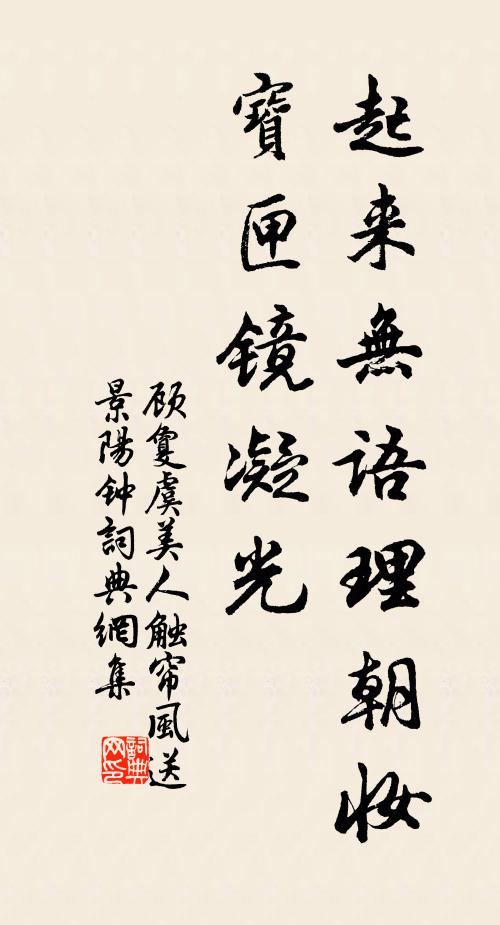 起来無語理朝妆
寶匣镜凝光
顾夐虞美人触帘風送
景陽钟詞典網集
詞典网印